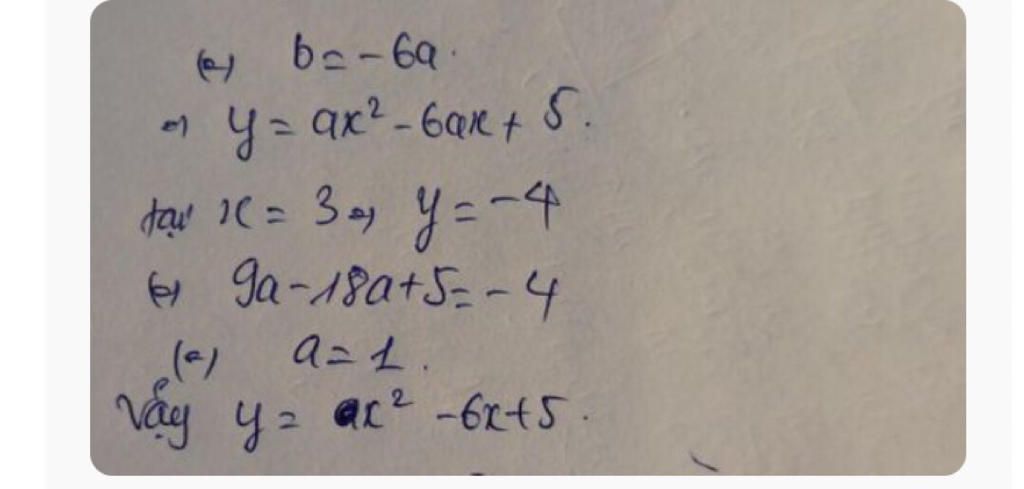 (=) b = -6a.
=> y = ax² - 6ax + 5.
tại x = 3 => y = -4
(=) 9a - 18a + 5 = -4
(=) a = 1.
Vậy y = x² - 6x + 5.